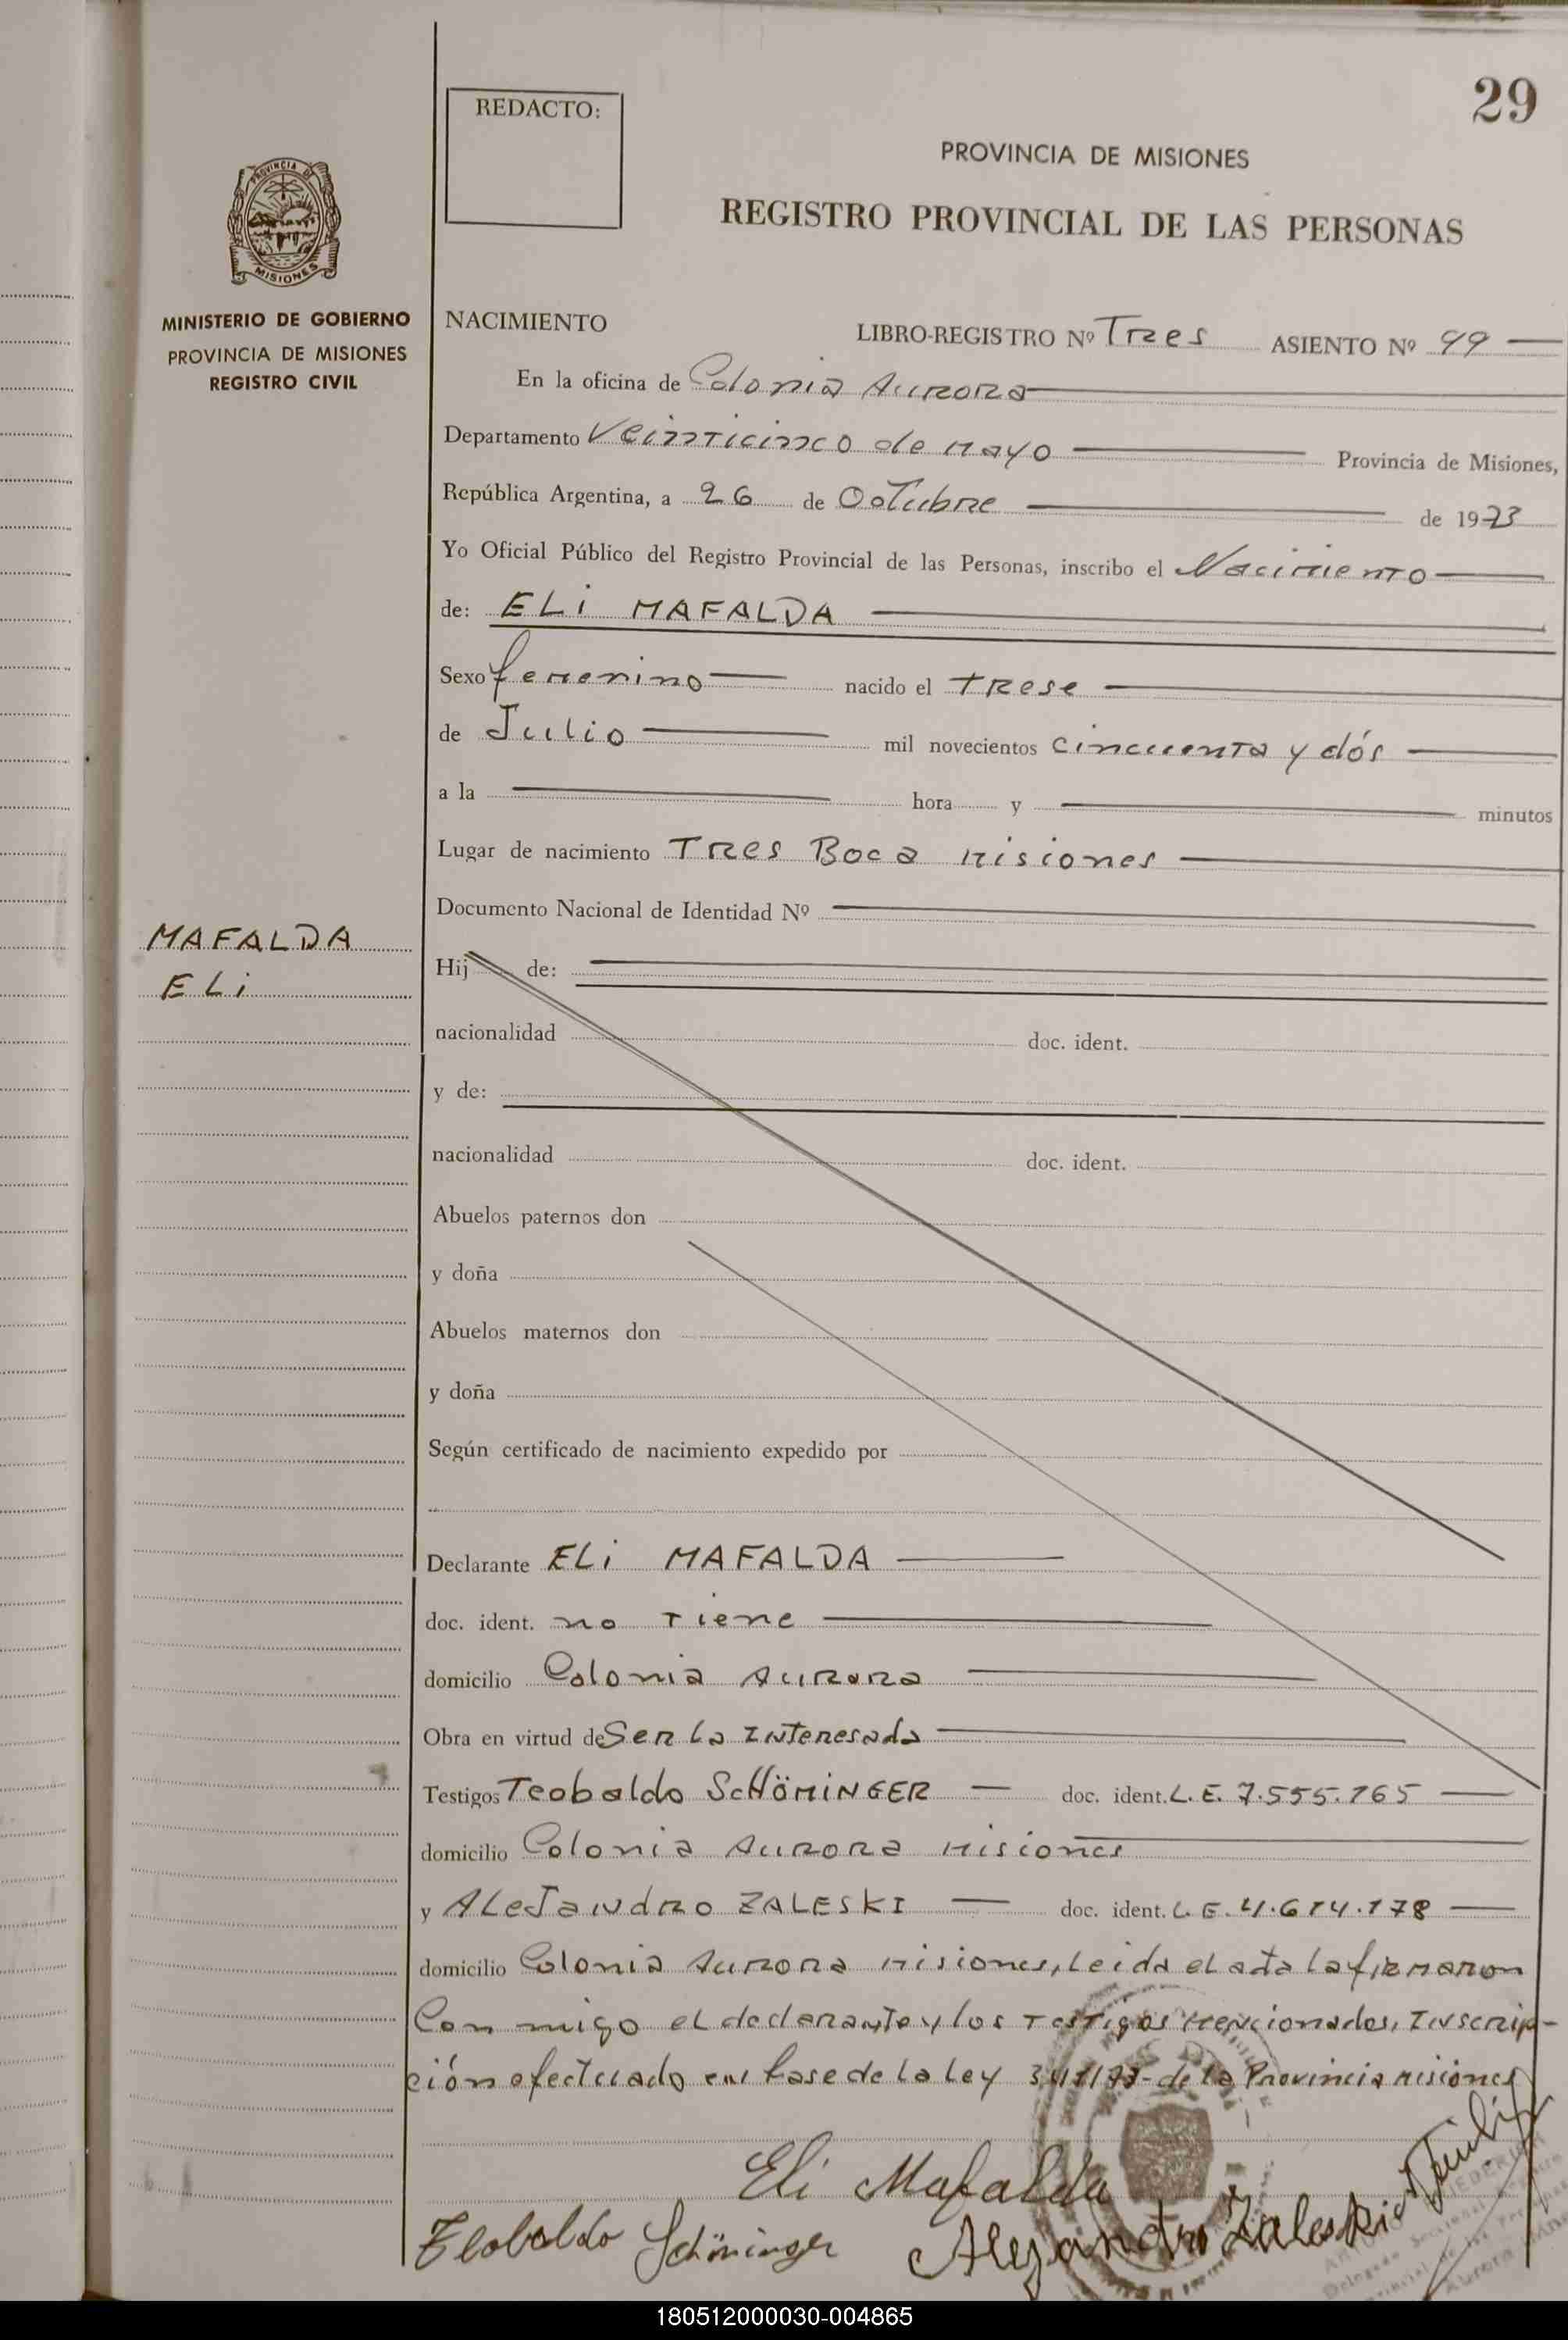 29
REDACTO:
PROVINCIA DE MISIONES
REGISTRO PROVINCIAL DE LAS PERSONAS
PROVINCIA DE
MISIONES
MINISTERIO DE GOBIERNO
PROVINCIA DE MISIONES
REGISTRO CIVIL
NACIMIENTO LIBRO-REGISTRO Nº Tres ASIENTO Nº 99
En la oficina de Colonia Aurora
Departamento Veinticinco de Mayo Provincia de Misiones,
República Argentina, a 26 de Octubre de 1973
Yo Oficial Público del Registro Provincial de las Personas, inscribo el Nacimiento
de: ELi MAFALDA
Sexo femenino nacido el trese
de Julio mil novecientos cincuenta y dós
a la hora y minutos
Lugar de nacimiento Tres Boca Misiones
Documento Nacional de Identidad Nº
MAFALDA
ELi
Hij de:
nacionalidad doc. ident.
y de:
nacionalidad doc. ident.
Abuelos paternos don
y doña
Abuelos maternos don
y doña
Según certificado de nacimiento expedido por
Declarante ELi MAFALDA
doc. ident. no tiene
domicilio Colonia Aurora
Obra en virtud de Ser la Interesada
Testigos Teobaldo SCHÖNINGER doc. ident. L.E. 7.555.765
domicilio Colonia Aurora Misiones
y ALeJandro ZALESKI doc. ident. L.E. 4.614.178
domicilio Colonia Aurora Misiones, Leida el acta la firmaron
Con migo el declarante y los Testigos Mencionados, Inscrip-
ción efectuado en base de la Ley de la Provincia Misiones
Eli Mafalda
Teobaldo Schöninger Alejandro Zaleski
180512000030-004865